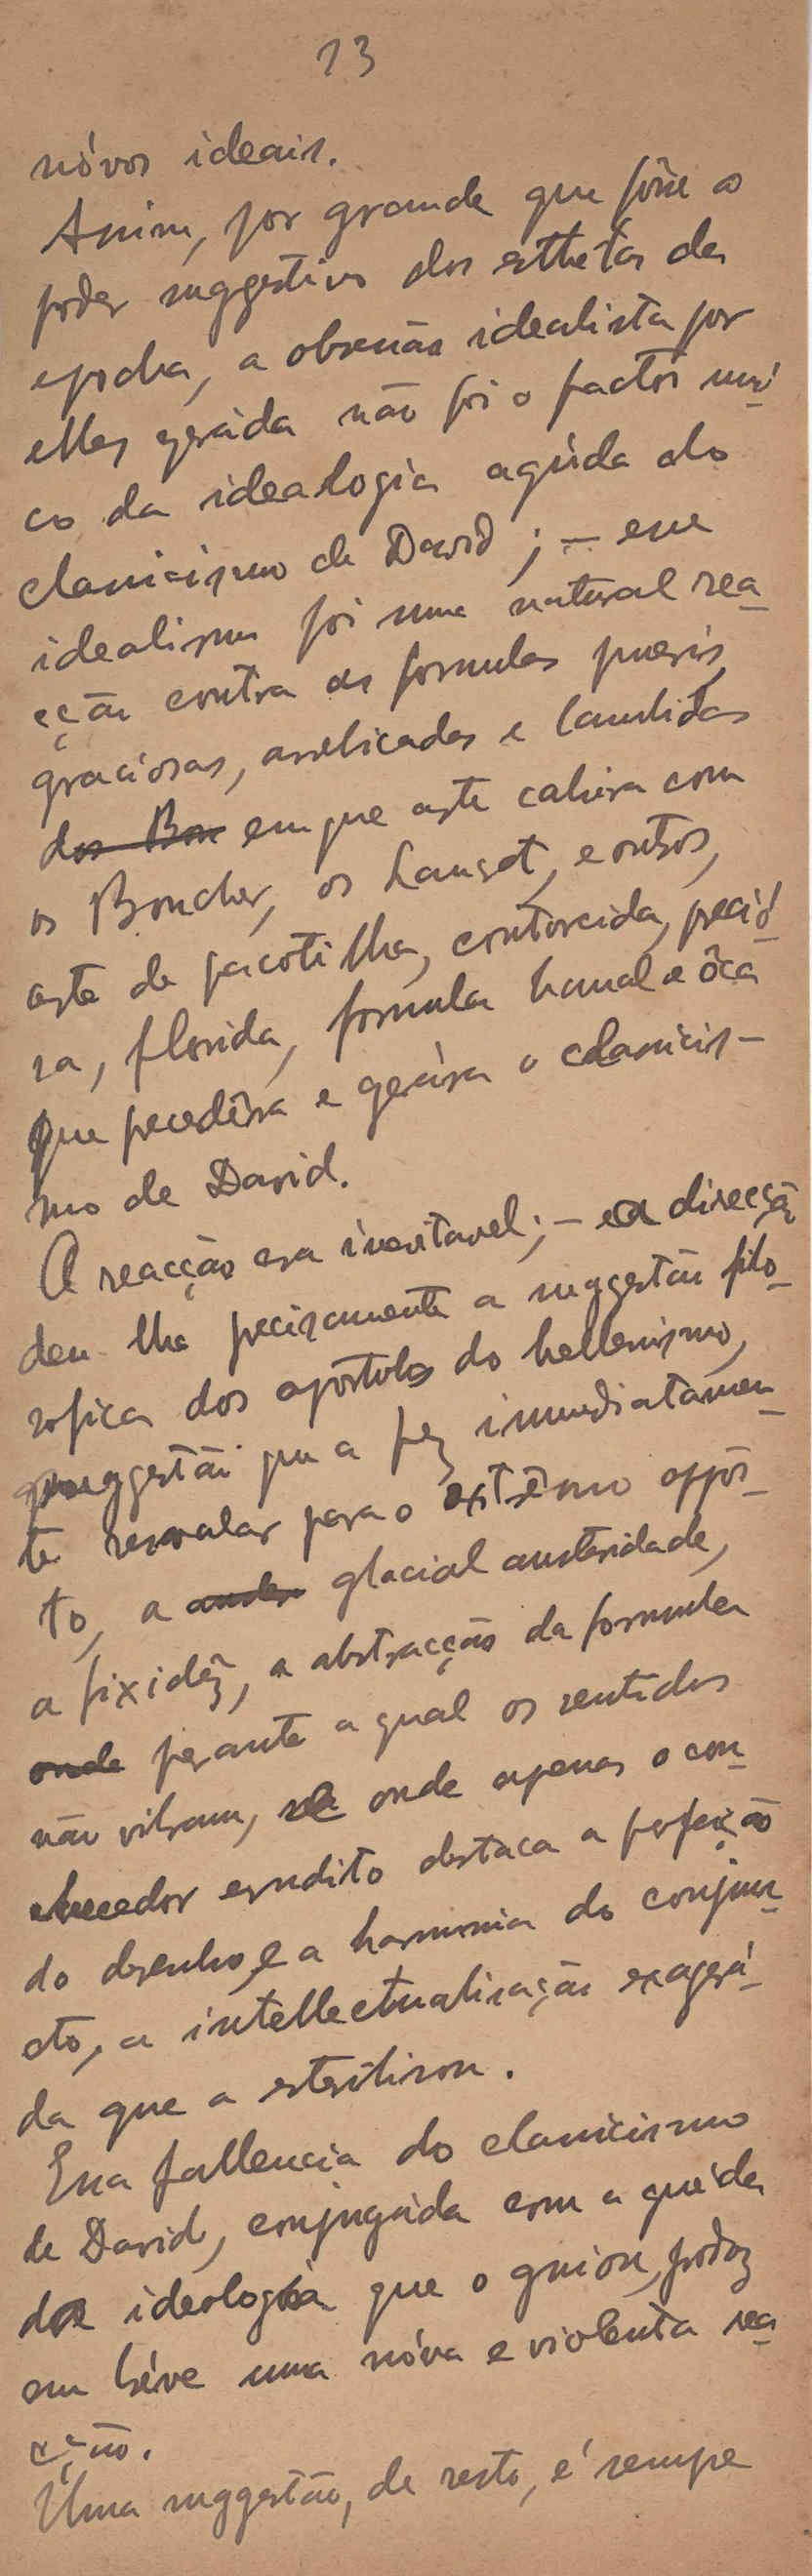 13
nóvos ideais.
Assim, por grande que fôsse o
poder suggestivo dos esthetas da
epocha, a obsessão idealista por
elles geráda não foi o factor uni
co da idealogia agúda do
classicismo de David ; — esse
idealismo foi uma natural rea_
cção contra as formulas pueris,
graciosas, arrebicadas e lambidas
dos Bou em que arte cahira com
os Boucher, os Lancret, e outros,
arte de pacotilha, contorcida, preció_
sa, florida, formula banal e ôca
que precedêra e gerára o classicis-
mo de David.
A reacção era inevitavel ; — a direcçã
deu-lha precisamente a suggestão filo_
sofica dos apostolos do hellenismo,
suggestão que a fez immediatamen_
te resvalar para o extrêmo oppós_
to, a auster glacial austeridade,
a fixidêz, a abstracção da formula
onde perante a qual os sentidos
não vibram, onde apenas o con_
hecedor erudito destaca a perfeição
do desenho, e a harmonia do conjun_
cto, a intellectualisação exagerá_
da que a esterilisou.
Essa fallencia do classicismo
de David, conjugáda com a quéda
da ideologia que o guiou, produz
em bréve uma nóva e violenta rea_
cção.
Uma suggestão, de resto, é sempre